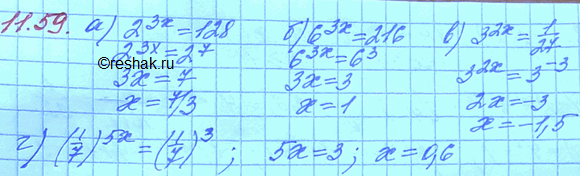 11.59. а) 2^{3x}=128 б) 6^{3x}=216 в) 3^{2x}=1/27
2^{3x}=2^7 6^{3x}=6^3 3^{2x}=3^{-3}
©reshak.ru
3x=7 3x=3 2x=-3
x=7/3 x=1 x=-1,5
г) (1/7)^{5x}=(1/7)^3; 5x=3; x=0,6